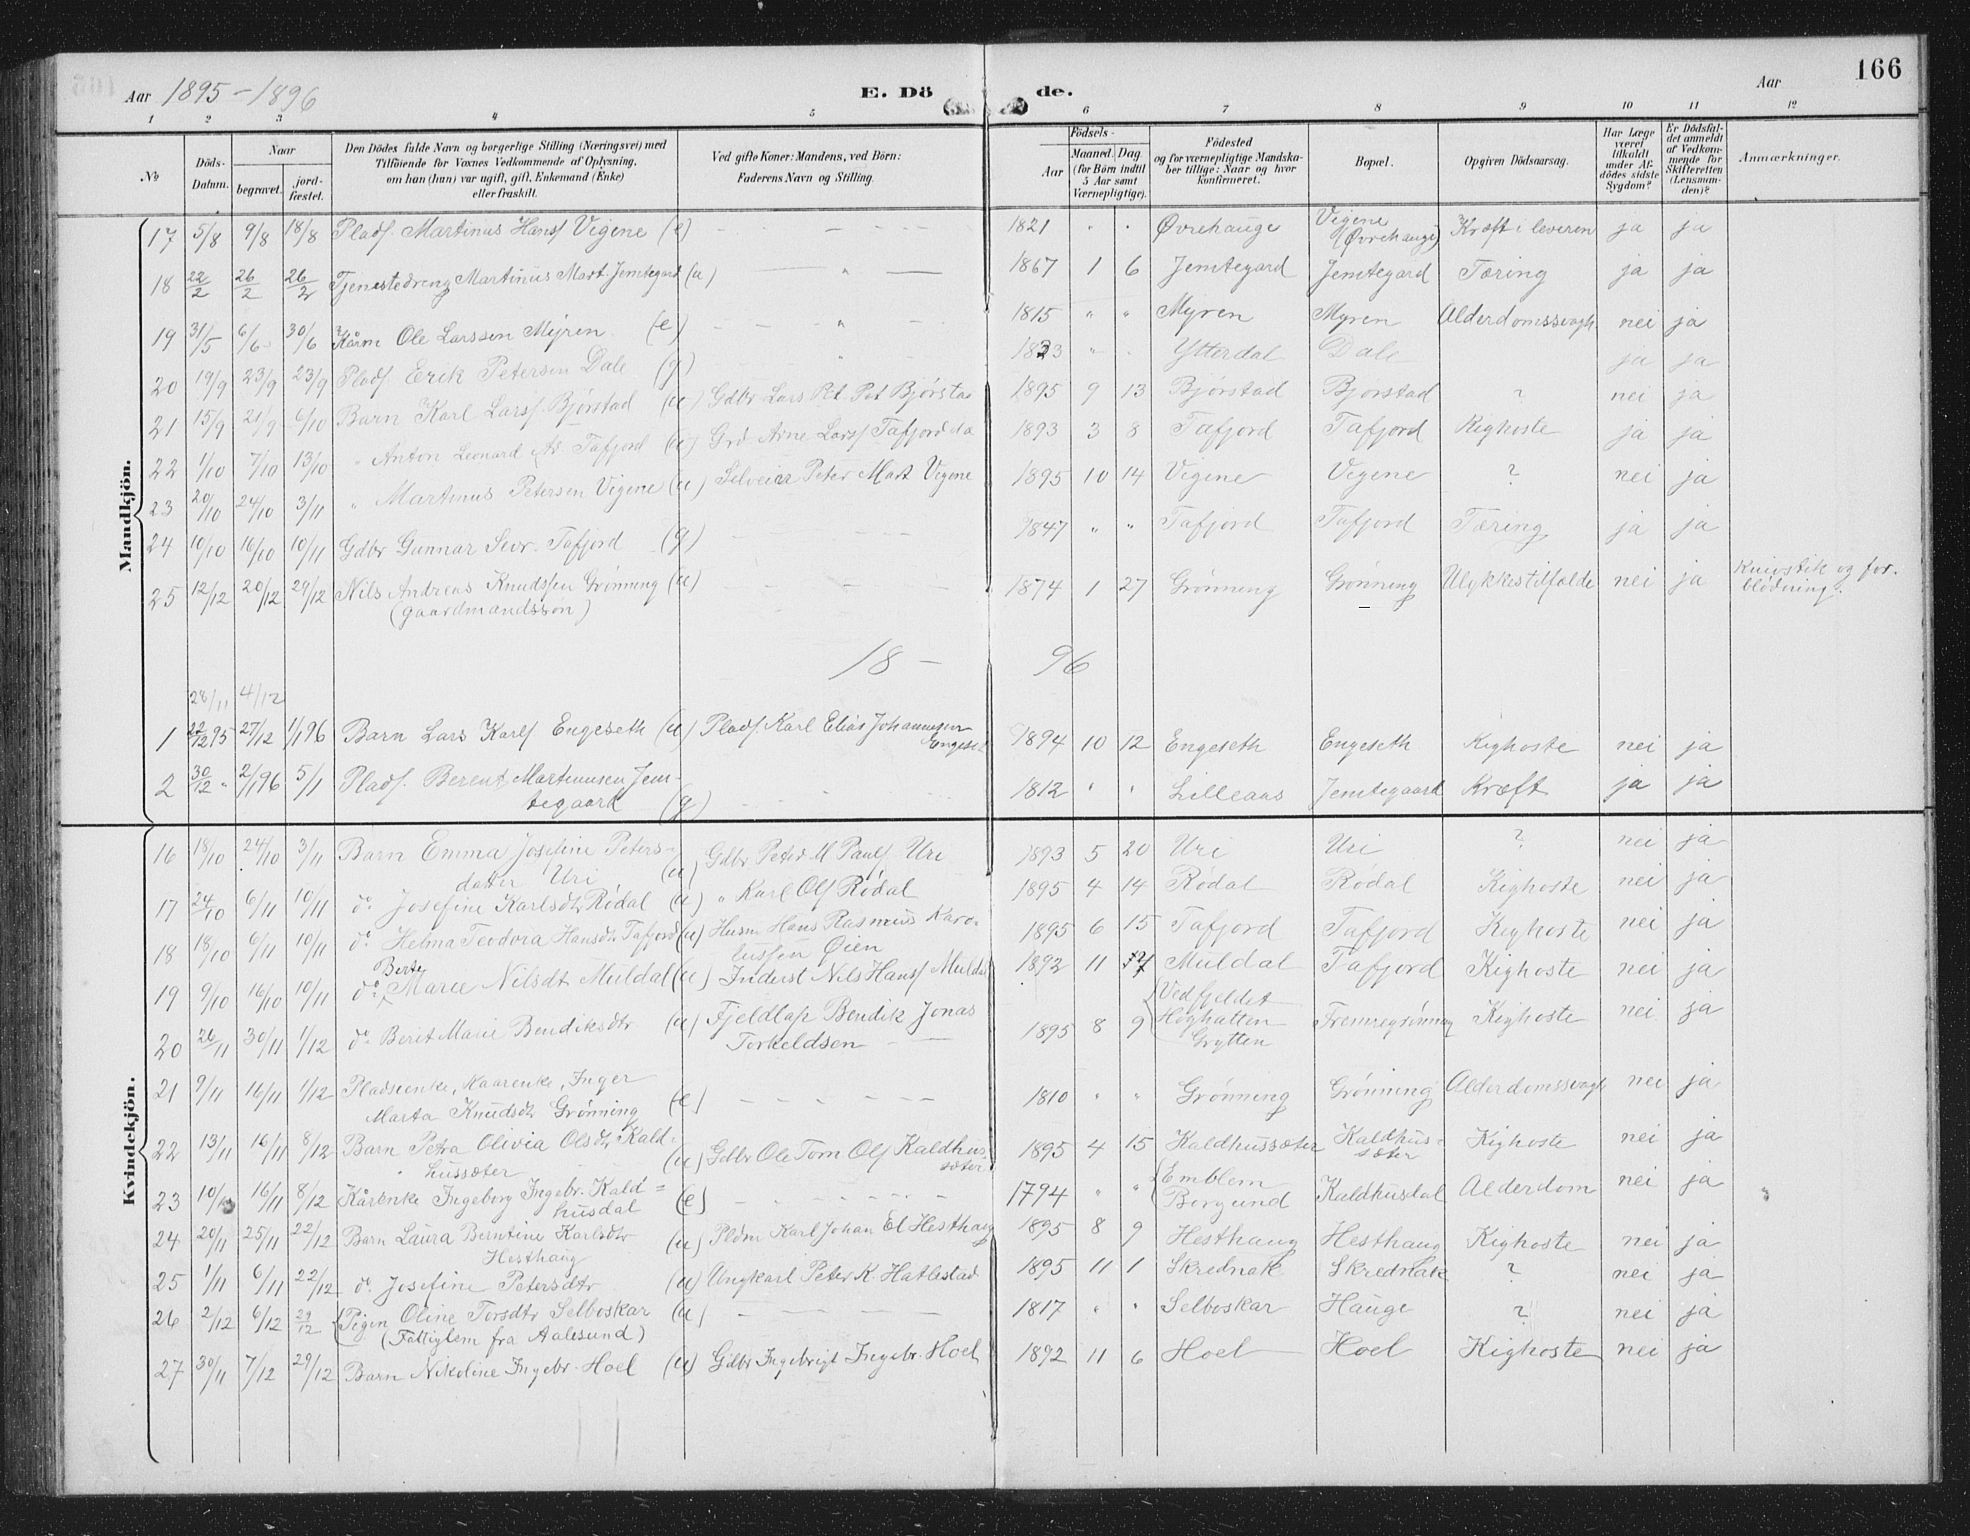 Aar 1895-1896 E. Döde. Aar 166
1 2 3 4 5 6 7 8 9 10 11 12
No
Döds-Datum.
Naar
begravet.
jord-fæstet.
Den Dödes fulde Navn og borgerlige Stilling (Næringsvei) med
Tilföiende for Voxnes Vedkommende af Oplysning,
om han (hun) var ugift, gift, Enkemand (Enke)
eller fraskilt.
Ved gifte Koner: Mandens, ved Börn:
Faderens Navn og Stilling.
Födsels-
Aar
Maaned. Dag.
(for Börn indtil
5 Aar samt
Værnepligtige).
Födested
og for værnepligtige Mandska-
ber tillige: Naar og hvor
konfirmeret.
Bopæl.
Opgiven Dödsaarsag.
Har Læge
været
tilkaldt
under Af-
dödes sidste
Sygdom?
Er Dödsfal-
det anmeldt
af Vedkom-
mende for
Skifteretten
(Lensman-
den)?
Anmærkninger.
Mandkjön.
17 5/8 9/8 18/8 Pladsf. Martinus Hansf Vigene (e) 1821 " " Øvrehauge Vigene (Øvrehauge) Kræft i leveren ja ja
18 22/2 26/2 26/2 Tjenestedreng Martinus Mart. Jemtegard (u) — " — 1867 1 6 Jemtegard Jemtegard Tæring ja ja
19 31/5 6/6 30/6 Kårm Ole Larssen Myren (e) — " — 1815 " " Myren Myren Alderdomssvagh nei ja
20 19/9 23/9 23/9 Pladsf. Erik Petersen Dale (g) " 1823 " " Ytterdal Dale ja ja
21 15/9 21/9 6/10 Barn Karl Larsf. Bjørstad (u) Gdbr Lars Pet. Bjørsta 1895 9 13 Bjørstad Bjorstad ? nei ja
22 1/10 7/10 13/10 " Anton Leonard Ar. Tafjord (u) Grd Arne Larsf Tafjord 1893 3 8 Tafjord Tafjord Kighoste ja ja
23 20/10 24/10 3/11 " Martinus Petersen Vigene (u) Selveier Peter Mart Vigene 1895 10 14 Vigene Vigene ? nei ja
24 10/10 16/10 10/11 Gdbr Gunnar Sevr. Tafjord (g) 1847 " " Tafjord Tafjord Tæring ja ja
25 12/12 20/12 29/12 Nils Andreas Knudssen Grønning (u) 1874 1 27 Grønning Grønning Ulykkestilfælde nei ja Knivstik og for-
(gaardmandssøn) blødning.
18 — 96
28/11 4/12
1 22/12 95 27/12 1/1 96 Barn Lars Karlf Engeseth (u) Pladsf. Karl Elias Johannesen 1894 10 12 Engeseth Engeseth Kighoste nei ja
Engeset
2 30/12 " 2/1 96 5/1 Pladsf. Berent Martinusen Jem- 1812 " " Lilleaas Jemtegaard Kræft ja ja
tegaard (g)
Kvindekjön.
16 18/10 24/10 3/11 Barn Emma Josefine Peters- Gdbr Peter M Paulf Uri 1893 5 20 Uri Uri ? nei ja
datter Uri (u)
17 24/10 6/11 10/11 do Josefine Karlsdtr Rødal (u) " Karl Olf Rødal 1895 4 14 Rødal Rødal Kighoste nei ja
18 18/10 6/11 10/11 do Helma Teodora Hansdtr Tafjord (u) Husm Hans Rasmus Karo- 1895 6 15 Tafjord Tafjord Kighoste nei ja
lussen Øien
Berte
19 9/10 16/10 10/11 do Marie Nilsdt Muldal (u) Inderst Nils Hansf Muldal 1892 11 Muldal Tafjord Kighoste nei ja
20 26/11 30/11 1/12 do Berit Marie Bendiksdtr (u) Fjeldlap Bendik Jonas 1895 8 9 Ved fjeldet
Torkeldsen Høghatten Fremregrønning Kighoste nei ja
Grytten
21 9/11 16/11 1/12 Pladsenke, Kaarenke, Inger 1810 " " Grønning Grønning Alderdomssvagh nei ja
Marta Knudsdtr Grønning (e)
22 13/11 16/11 8/12 Barn Petra Olivia Olsdtr Kald- Gdbr Ole Tom Olf Kaldhus- 1895 4 15 Kaldhussæter Kaldhus- Kighoste nei ja
hussæter (u) sæter sæter
23 10/11 16/11 8/12 Kårenke Ingeborg Ingebr. Kald- (e) 1794 " " Emblem Kaldhusdal Alderdom nei ja
husdal Borgund
24 20/11 25/11 22/12 Barn Laura Berntine Karlsdtr (u) Pldm Karl Johan El Hesthaug 1895 8 9 Hesthaug Hesthaug Kighoste nei ja
Hesthaug
25 1/11 6/11 22/12 do. Josefine Petersdtr (u) Ungkarl Peter K. Hatlestad 1895 11 1 Skrednak Skrednak ? nei ja
26 2/12 6/12 29/12 Pigen Oline Torsdtr Selboskar (u) 1817 " " Selboskar Hauge ? nei ja
(Fattiglem fra Aalesund)
27 30/11 7/12 29/12 Barn Nikoline Ingebr. Hoel (u) Gdbr Ingebrigt Ingebr. Hoel 1892 11 6 Hoel Hoel Kighoste nei ja